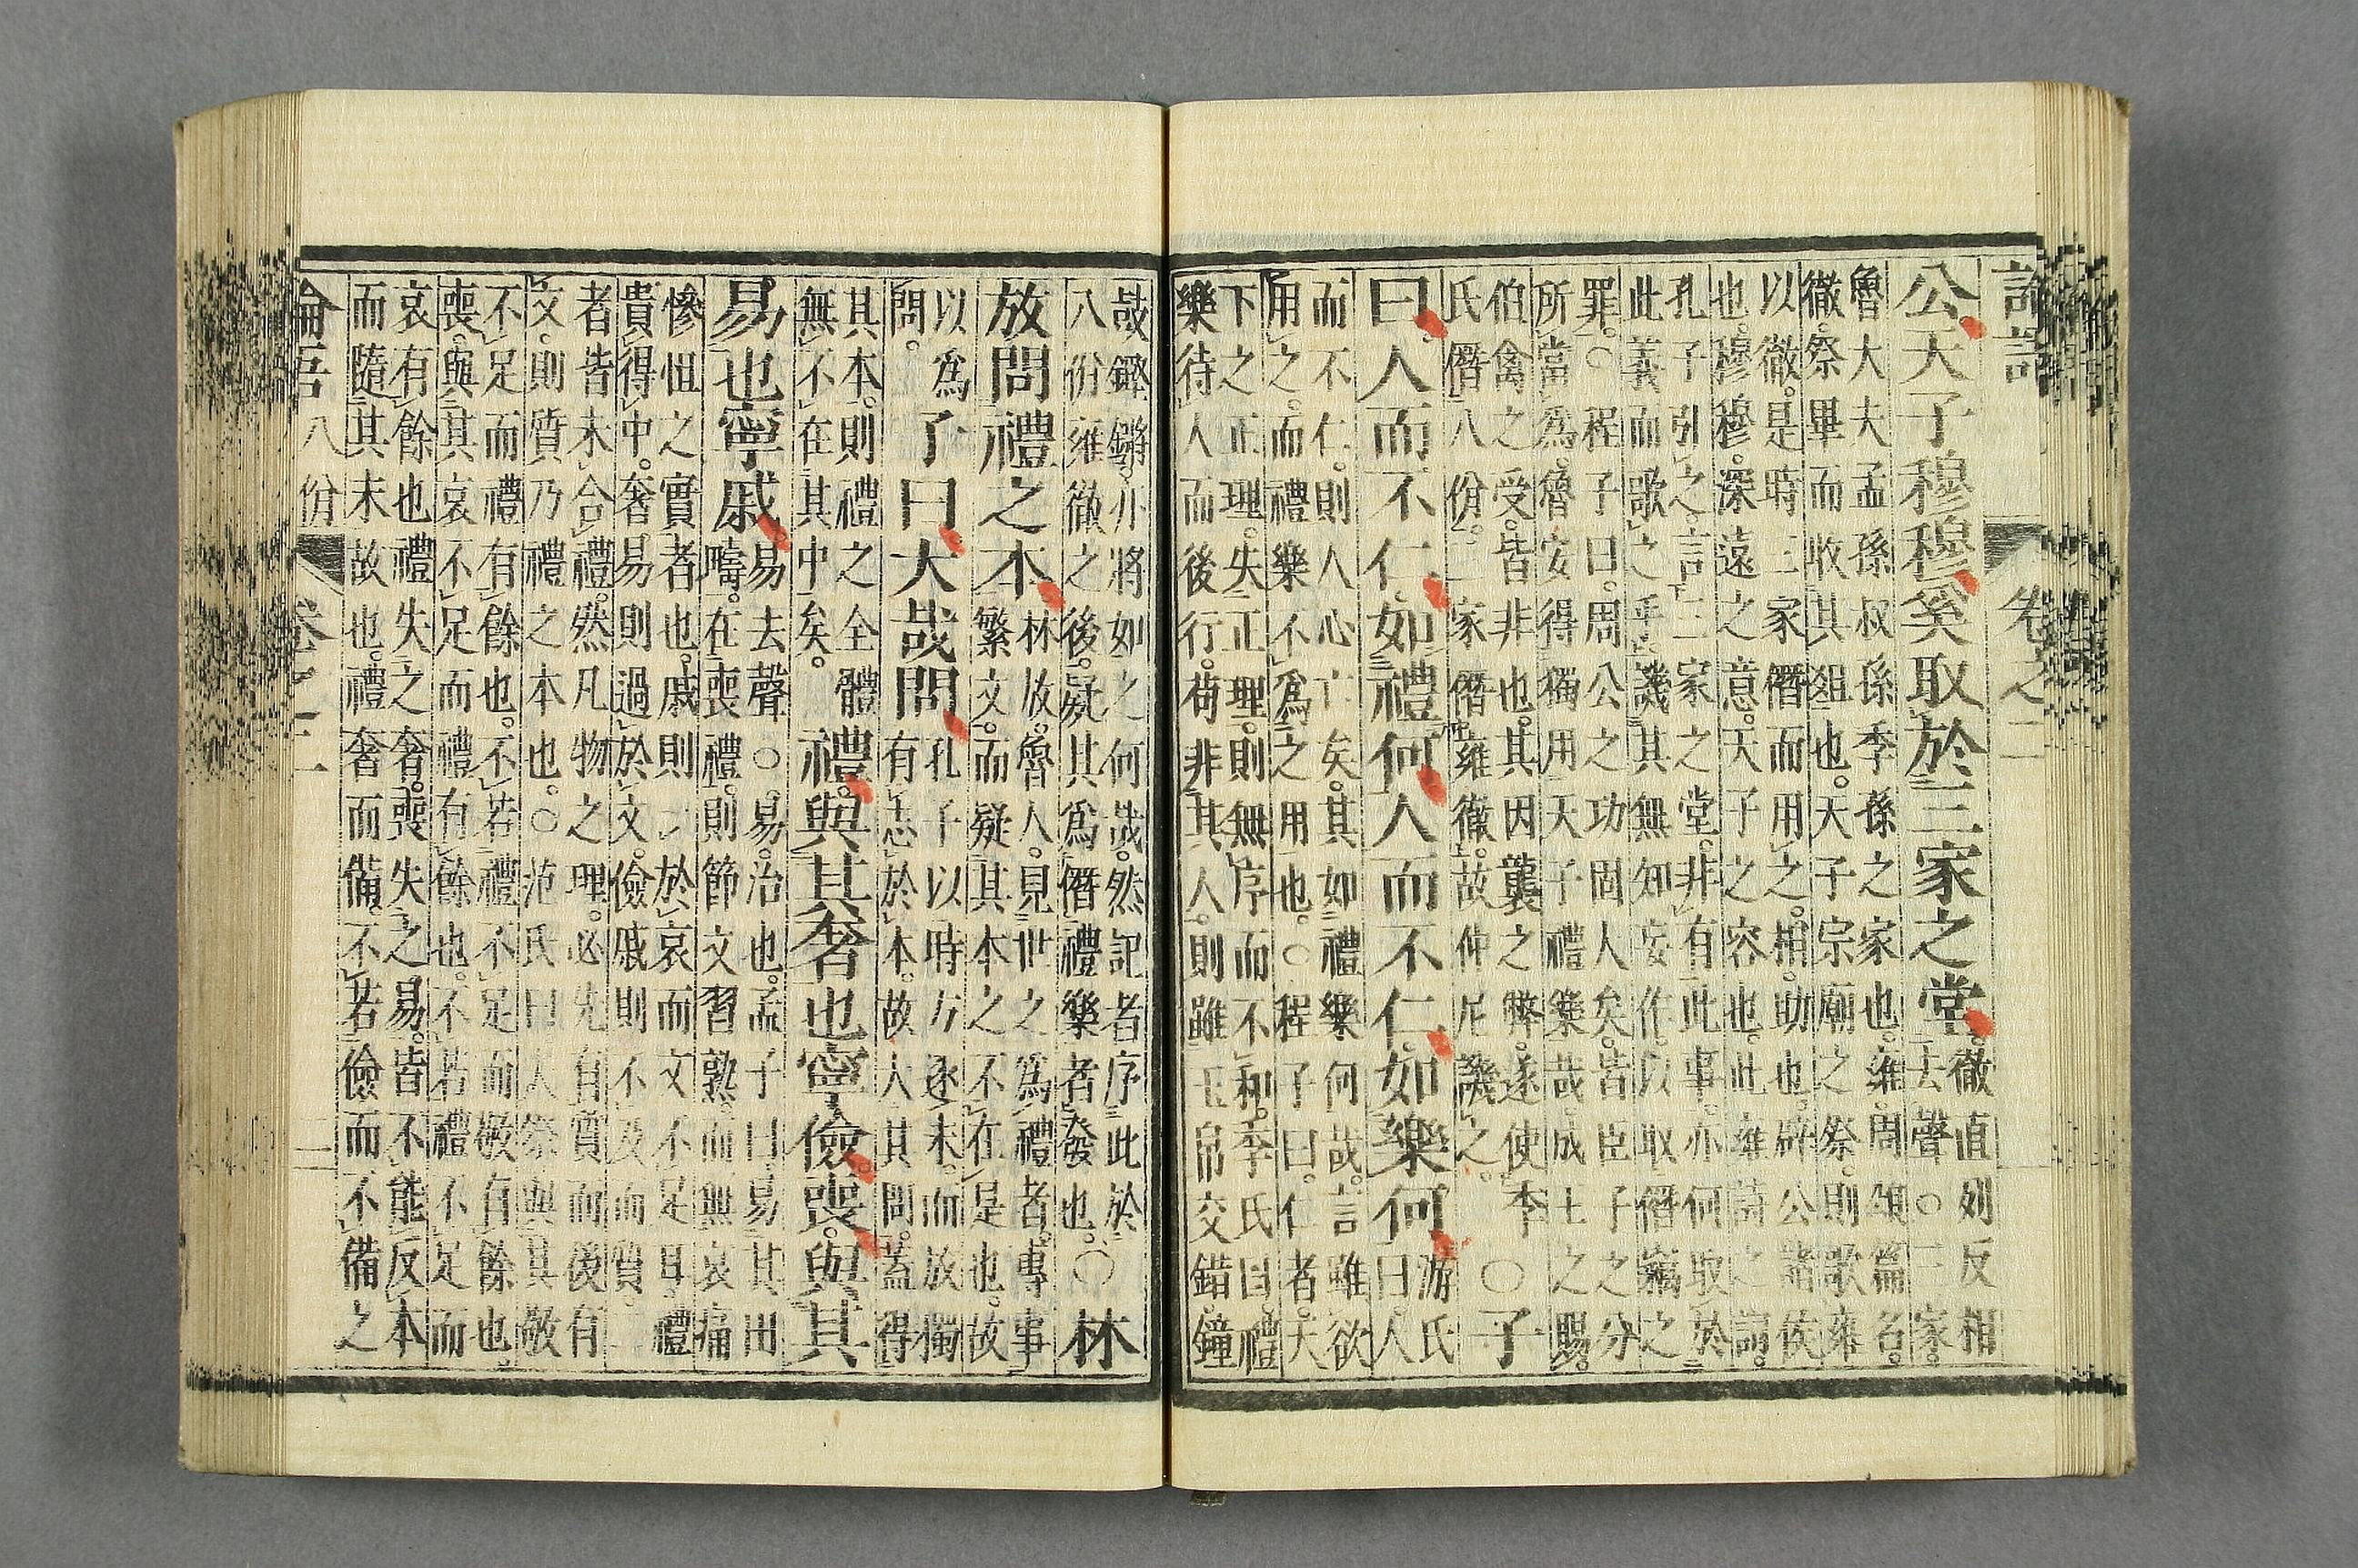 論語 卷之二
公天子穆穆奚取於三家之堂。徹直列反相
去聲○三家。
魯大夫孟孫叔孫季孫之家也。雍周頌篇名。
徹。祭畢而收其俎也。天子宗廟之祭。則歌雍
以徹。是時三家僭而用之。相。助也。辟公諸侯
也。穆穆。深遠之意。天子之容也。此雍詩之詞。
孔子引之。言三家之堂。非有此事。亦何取於
此義而歌之乎。譏其無知妄作。以取僭竊之
罪。○程子曰。周公之功固大矣。皆臣子之分
所當爲。魯安得獨用天子禮樂哉。成王之賜。
伯禽之受。皆非也。其因襲之弊。遂使季
氏僭八佾。三家僭雍徹。故仲尼譏之。
○子
曰。人而不仁。如禮何。人而不仁。如樂何。游氏
曰人
而不仁。則人心亡矣。其如禮樂何哉。言雖欲
用之。而禮樂不爲之用也。○程子曰。仁者。天
下之正理。失正理。則無序而不和。李氏曰。禮
樂待人而後行。苟非其人。則雖玉帛交錯。鐘
鼓鏗鏘。亦將如之何哉。然記者序此於
八佾雍徹之後。疑其爲僭禮樂者發也。
○林
放問禮之本。林放。魯人。見世之爲禮者。專事
繁文。而疑其本之不在是也。故
以爲
問。
子曰。大哉問。孔子以時方逐末。而放獨
有志於本。故大其問。蓋得
其本。則禮之全體
無不在其中矣。
禮。與其奢也寧儉。喪。與其
易也寧戚。易去聲○易。治也。孟子曰。易其田
疇。在喪禮。則節文習熟。而無哀痛
慘怛之實者也。戚則一於哀而文不足耳。禮
貴得中。奢易則過於文。儉戚則不及而質。二
者皆未合禮。然凡物之理。必先有質而後有
文。則質乃禮之本也。○范氏曰夫祭與其敬
不足而禮有餘也。不若禮不足而敬有餘也
喪。與其哀不足而禮有餘也。不若禮不足而
哀有餘也。禮失之奢。喪失之易。皆不能反本
而隨其末故也。禮奢而備。不若儉而不備之
論語八佾 卷之二 二